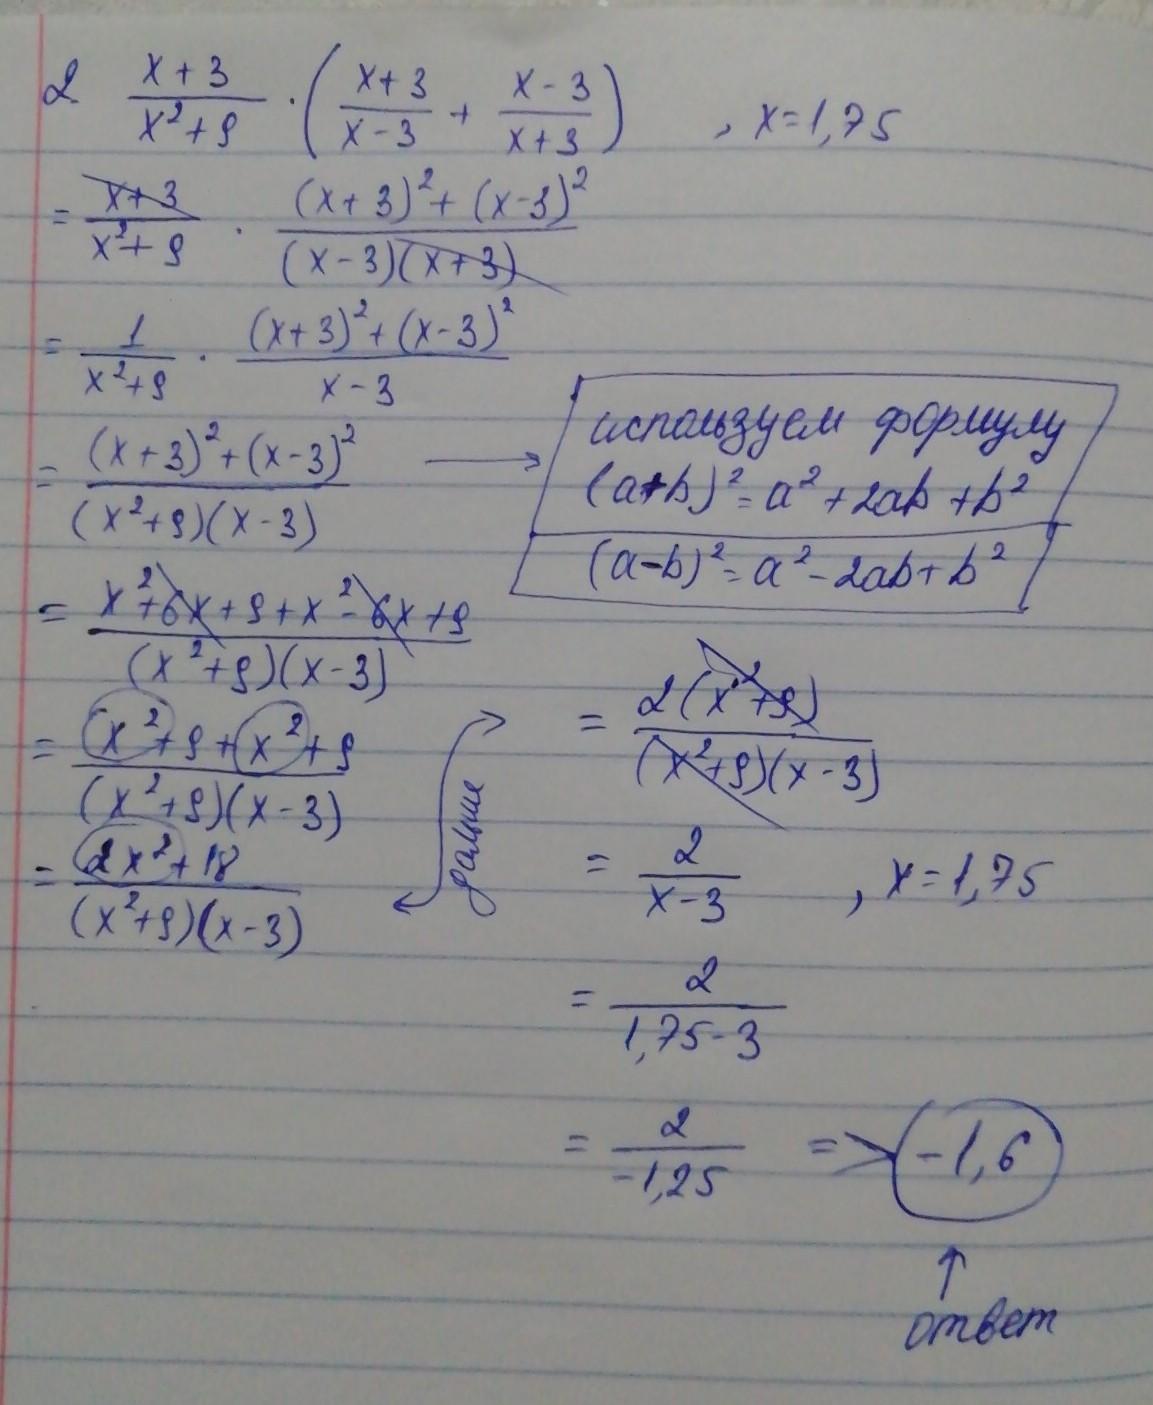 2 (x+3)/(x²+9) · ((x+3)/(x-3) + (x-3)/(x+3)) , x=1,75
= (x+3)/(x²+9) · ((x+3)²+(x-3)²)/((x-3)(x+3))
= 1/(x²+9) · ((x+3)²+(x-3)²)/(x-3)
= ((x+3)²+(x-3)²)/((x²+9)(x-3)) →
используем формулу
(a+b)²=a²+2ab+b²
(a-b)²=a²-2ab+b²
= (x²+6x+9+x²-6x+9)/((x²+9)(x-3))
= (x²+9+x²+9)/((x²+9)(x-3))
= (2x²+18)/((x²+9)(x-3))
дальше
= 2(x²+9)/((x²+9)(x-3))
= 2/(x-3) , x=1,75
= 2/(1,75-3)
= 2/(-1,25) => -1,6
↑
ответ